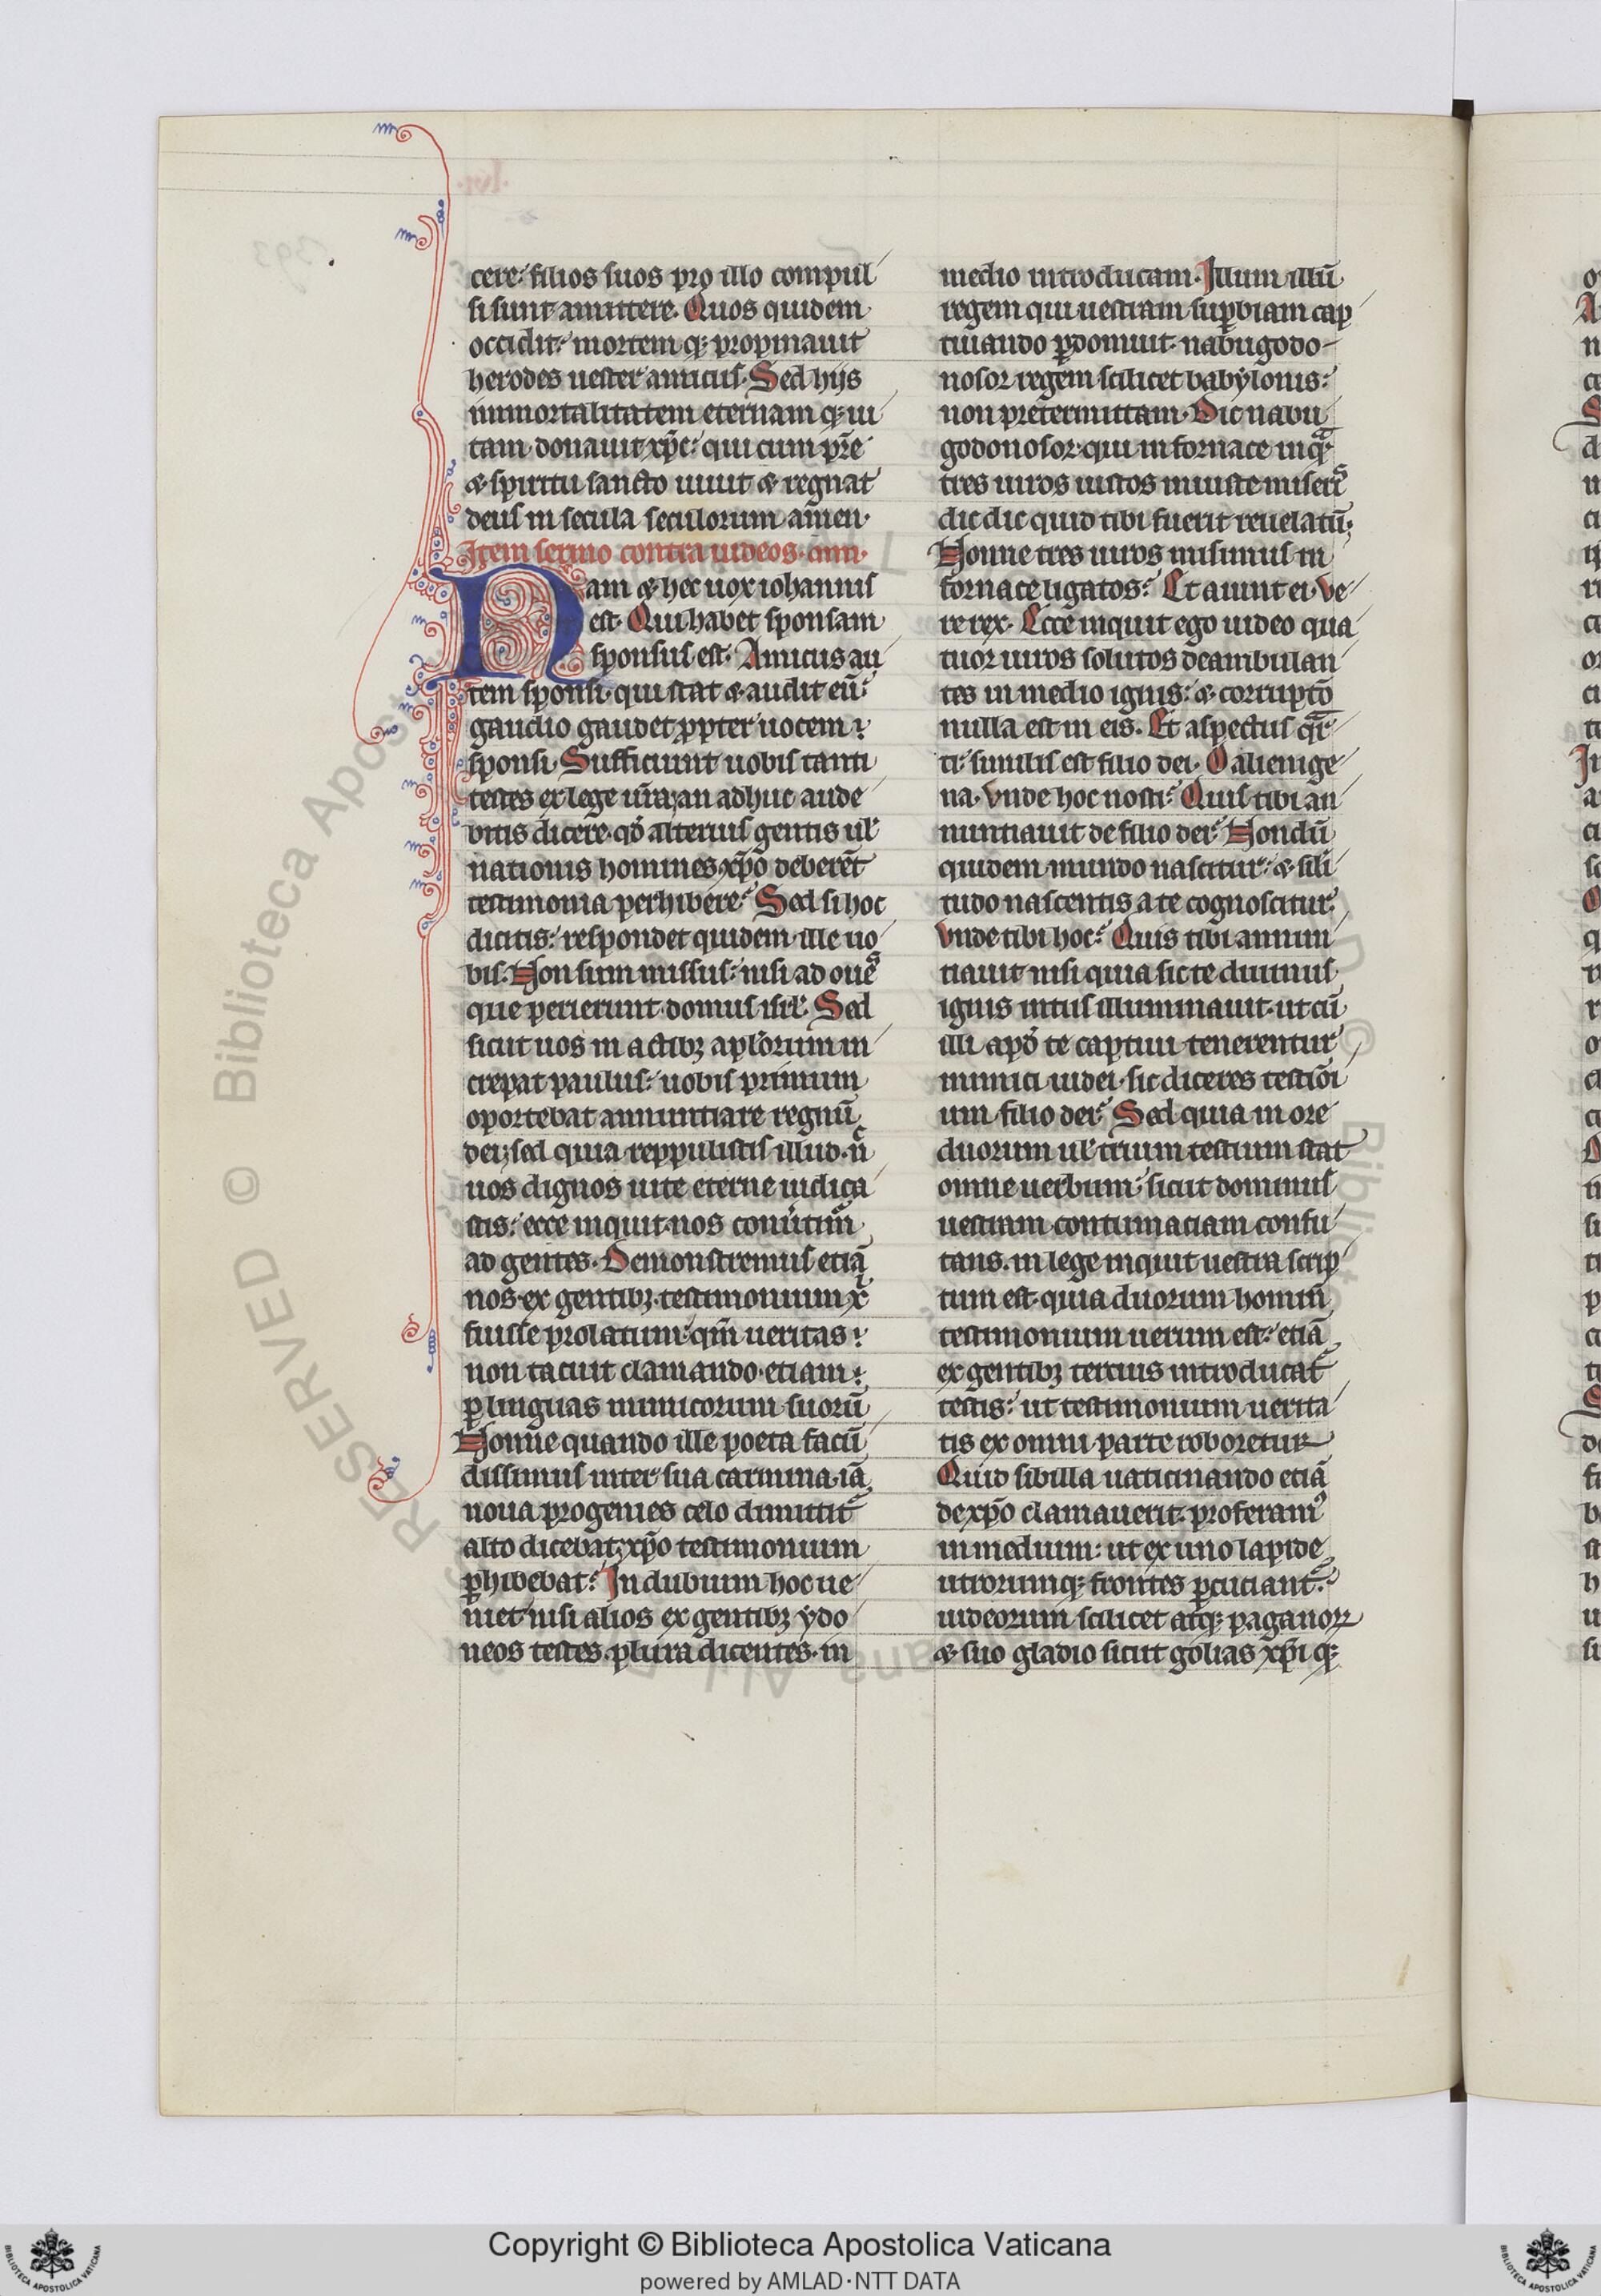 cere: filios suos pro illo compul
si sunt amittere. Quos quidem
occidit: mortem q; propinauit
herodes uester amicus. Sed hijs
immortalitatem eternam q; ui
tam donauit xp̄c: qui cum pr̄e
⁊ spiritu sancto uiuit ⁊ regnat
deus in secula seculorum am̄en.
Item sermo contra iudeos.
Nam ⁊ hec uox iohannis
est. Qui habet sponsam
sponsus est. Amicus au
tem sponsi. qui stat ⁊ audit eū:
gaudio gaudet ꝓpter uocem
sponsi. Sufficiunt uobis tanti
testes ex lege ur̄a; an adhuc aude
bitis dicere. qd̓ alterius gentis ul̓
nationis homines xp̄o deberēt
testimonia perhibere: Sed si hoc
dicitis: respondet quidem ille uo
bis. Non sum missus: nisi ad oues
que perierunt domus isrl̓. Sed
sicut uos in actibꝫ apl̓orum in
crepat paulus: uobis primum
oportebat annuntiare regnū
dei; sed quia reppulistis illud. n̄
uos dignos uite eterne iudica
stis: ecce inquit nos conūtim̓
ad gentes. Demonstremus etiā
nos ex gentibꝫ. testimonium x̄
fuisse prolatum: qm̄ ueritas
non tacuit clamando. etiam
ꝑ linguas inimicorum suorū
Nonne quando ille poeta facū
dissimus inter sua carmina. iā
noua progenies celo dimittit᷑
alto dicebat; xp̄o testimonium
ꝑhibebat: In dubium hoc ue
niet nisi alios ex gentibꝫ ydo
neos testes. plura dicentes. in
medio introducam. Illum illū
regem qui uestram suꝑbiam cap
tiuando ꝑdomuit. nabugodo-
nosor regem scilicet babylonis:
non pretermittam. Dic nabu
godonosor. qui in fornace inqͣ
tres uiros iustos iniuste miser̄s
dic dic quid tibi fuerit reuelatū;
Nonne tres uiros misimus in
fornace ligatos: Et aiunt ei. Ve-
re rex. Ecce inquit ego uideo qua
tuor uiros solutos deambulan
tes in medio ignis: ⁊ corruptō
nulla est in eis. Et aspectus qͣr
ti: similis est filio dei. O alienige
na. Vnde hoc nosti: Quis tibi an
nuntiauit de filio dei: Nondū
quidem mundo nascitur: ⁊ sili
tudo nascentis a te cognoscitur.
Vnde tibi hoc: Quis tibi annun
tiauit nisi quia sic te diuinus
ignis intus illuminauit. ut cū
illi apd̓ te captiui tenerentur
inimici iudei. sic diceres testiōi
um filio dei: Sed quia in ore
duorum ul̓ trium testium stat
omne uerbum: sicut dominus
uestram contumaciam confu
tans. in lege inquit uestra scrip
tum est. quia duorum hominū
testimonium uerum est: etiā
ex gentibꝫ tercius introducat᷑
testis: ut testimonium uerita
tis ex omni parte roboretur
Quid sibilla uaticinando etiā
de xp̄o clamauerit. proferam᷒
in medium: ut ex uno lapide
utrorumq; frontes ꝑcutiant᷑.
iudeorum scilicet atq; paganoꝝ
⁊ suo gladio sicut golias xp̄i q;
Copyright © Biblioteca Apostolica Vaticana
powered by AMLAD·NTT DATA